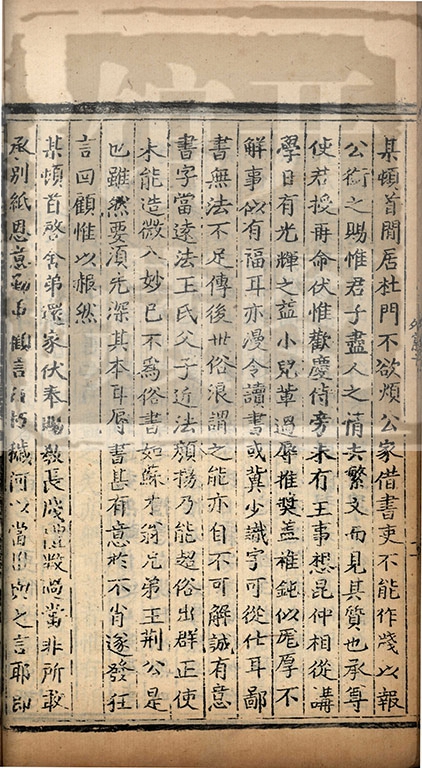 某頓首閒居杜門不欲煩公家借書吏不能作牋以報
公銜之賜惟君子盡人之情去繁文而見其質也承尊
使君授再命伏惟歡慶侍旁未有王事想昆仲相從講
學日有光輝之益小兒輩過辱推奬蓋稚鈍似厖厚不
解事似有福耳亦漫令讀書或冀少識字可從仕耳鄙
書無法不足傳後世俗浪謂之能亦自不可解誠有意
書字當遠法王氏父子近法顏楊乃能超俗出群正使
未能造微入妙已不爲俗書如蘇才翁兄弟王荆公是
也雖然要須先深其本耳辱書甚有意於不肖遂發狂
言回顧惟以赧然
某頓首啓舍弟還家伏奉賜教長牋禮數尚當非所敢
承别紙恩意
言
何以當
之言耶即